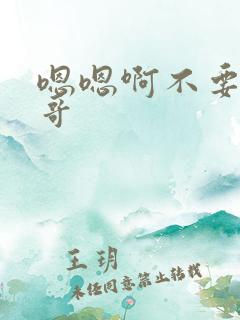 嗯嗯啊不要
哥
王玥
未经同意禁止转载